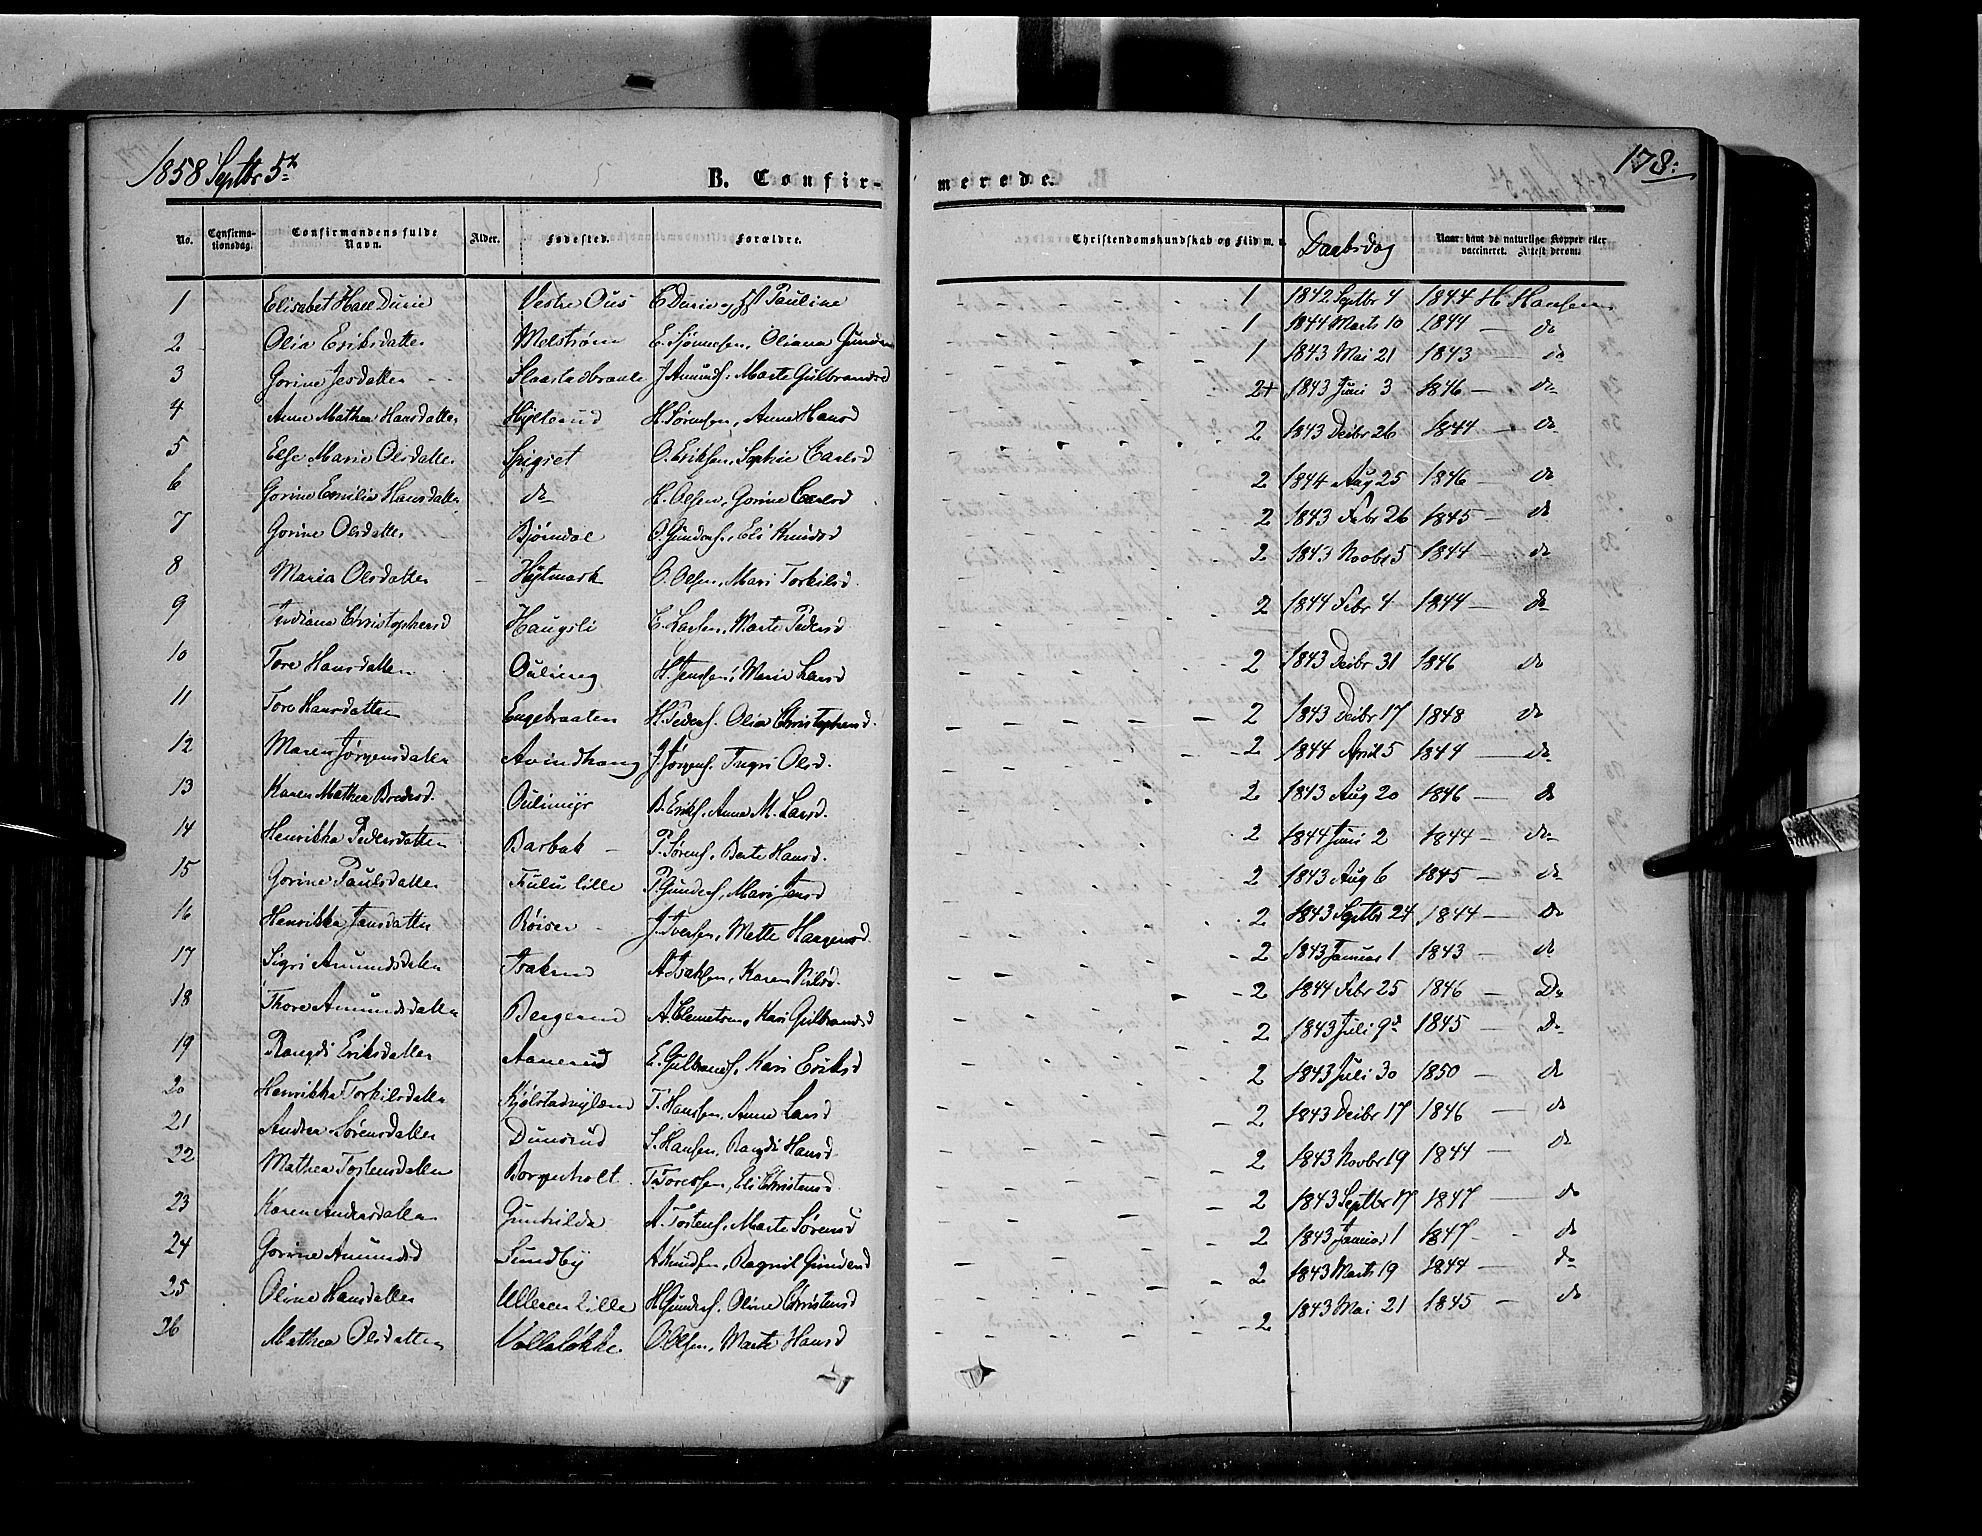 1858 Septbr 5te
178:
B. Confir-
merede.
No. Confirma-tionsdag. Confirmandens fulde Navn. Alder. Fødested. Forældre. Christendomskundskab og Flid m. v. Daabsdag Naar havt de naturlige Kopper eller vaccineret. Attest derom.
1 Elisabet Durie Vestre Ous E Durie og Pauline 1 1842 Septbr 4 1844 H Hansen
2 Olia Eriksdatter Melstrøm Oliana 1 1844 Marts 10 1844 — do
3 Gorine J. Amundf. Marte Gulbrandsd 1 1843 Mai 21 1843 — do
4 Anne Mathea Hansdatter H. Sørensen, Anne Hansd 2+ 1843 Juni 3 1846 — do
5 Else Marie Olsdatter Spigset O. Eriksen, Sophie Carlsd 2 1843 Decbr 26 1844 — do
6 Gorine Emilie Hansdatter do H. Olsen, Gorine Carlsd 2 1844 Aug 25 1846 — do
7 Gorine Olsdatter Bjørndal O. Gundersf., Eli Knudsd 2 1843 Febr 26 1845 — do
8 Maria Olsdatter Høgtmark O. Olsen, Mari Torkilsd. 2 1843 Novbr 5 1844 — do
9 Indiana Christophersd Haugsli C. Larsen, Marte Pedersd 2 1844 Febr 4 1844 — do
10 Tore Hansdatter Oulimeg H. Jensen, Maria Larsd 2 1843 Decbr 31 1846 do
11 Tore Hansdatter Engebraaten H. Pedersf. Olia Christophersd. 2 1843 Decbr 17 1848 do
12 Maren Jørgensdatter Avindhaug J. Jørgensf. Ingri Olsd. 2 1844 April 5 1844 — do
13 Karen Mathea Bredesd. Oulimyr B. Eriksf. Anne M. Larsd. 2 1843 Aug 20 1846 — do
14 Henrikka Pedersdatter Barbak P. Sørensf. Berte Hansd. 2 1844 Juni 2 1844 — do
15 Gorine Paulsdatter Fulu lille P. Gundersf. Mari Jensd 2 1843 Aug 6 1845 — do
16 Henrikka Jansdatter Røiser J. Iversen, Mette Haagensd. 2 1843 Septbr 24 1844 — do
17 Sigri Amundsdatter A. Isaksen, Karen Nilsd. 2 1843 Januar 1 1843 — do
18 Thore Amundsdatter Bergerud A. Clemetsen, Kari Gulbrandsd 2 1844 Febr 25 1846 — Do
19 Rangdi Eriksdatter Aanerud E. Gulbrandsf. Kari Eriksd 2 1843 Juli 9d 1845 — Do
20 Henrikka Torkilsdatter Kjølstad T. Hansen, Anne Larsd 2 1843 Juli 30 1850 — do
21 Andrea Sørensdatter Dunsrud S. Hansen, Rangdi Hansd. 2 1843 Decbr 17 1846 — do
22 Mathea Tostensdatter Borgerholt T. Toresen, Eli Christensd. 2 1843 Novbr 19 1844 — do
23 Karen Andersdatter Gunhilda A. Tostensf. Marte Sørensd 2 1843 Septbr 17 1847 — do
24 Gorine Amundsd Sundby A. Knudsen, Ragnil Gundersd 2 1843 Januar 1 1847 - do
25 Oline Hansdatter Ulleren lille H. Gundersf. Oline Christensd 2 1843 Marts 19 1844 — do
26 Mathea Olsdatter Vollaløkke O. Olsen, Marte Hansd 2 1843 Mai 21 1845 — do